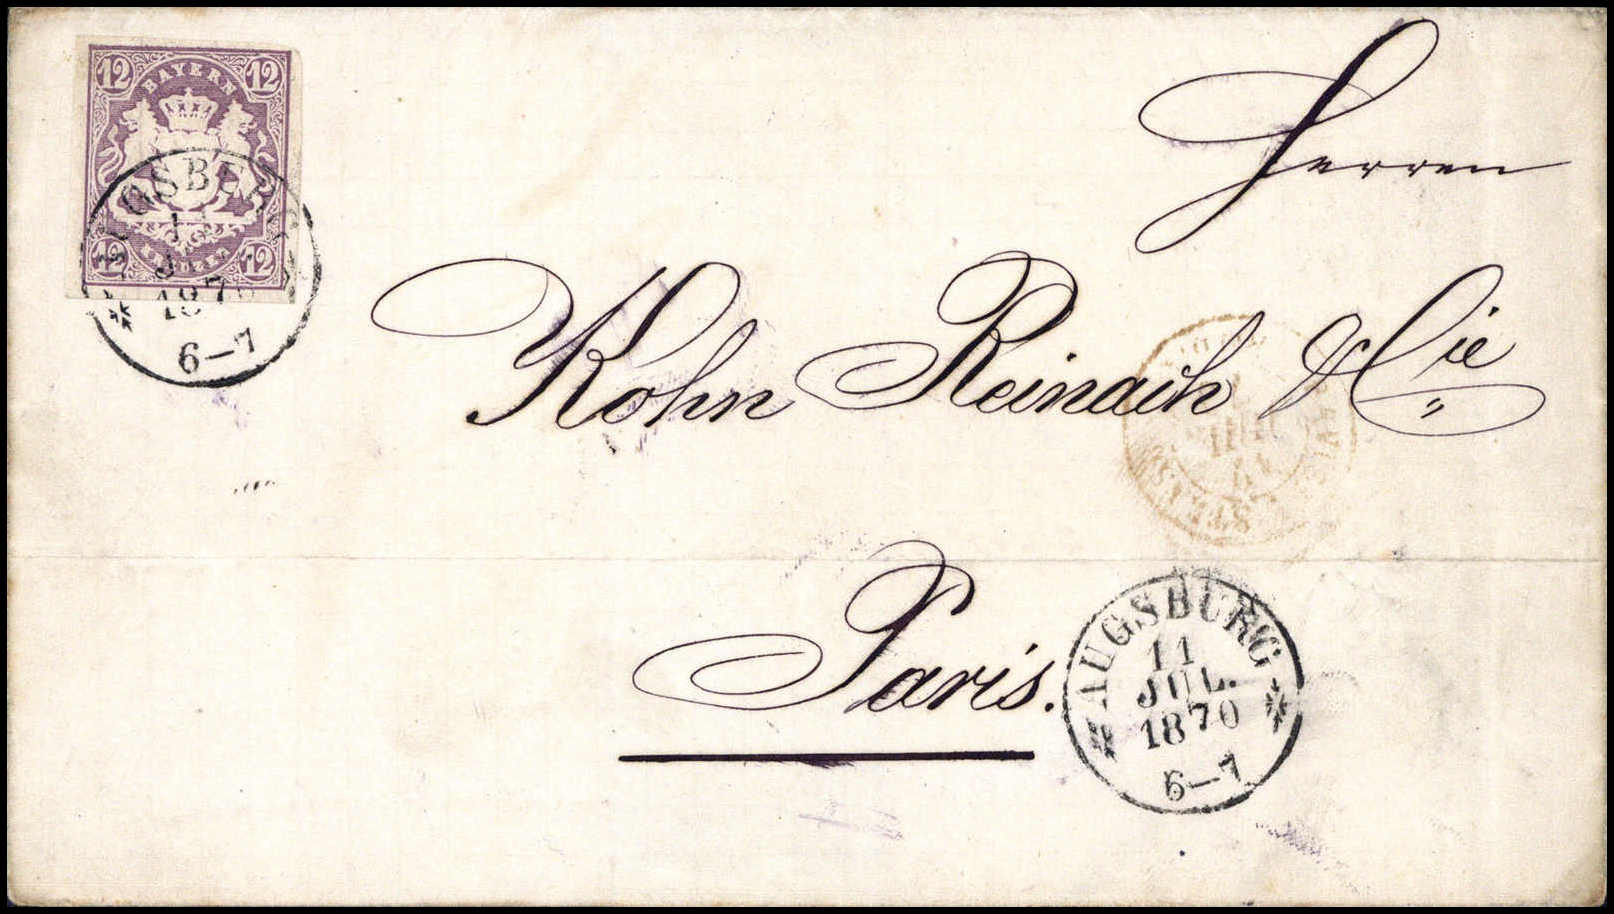 12 12
BAYERN
12 12
AUGSBURG
JUL.
1870
6-7
Herren
Kohn Reinach & Cie
Paris.
AUGSBURG
11
JUL.
1870
6-7